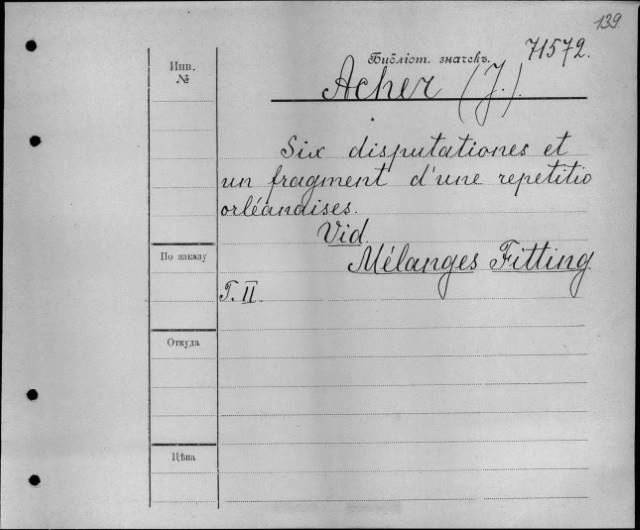 139
Инв.
№
Библіот. значекъ.
71572.
Acher (J.).
Six disputationes et
un fragment d'une repetitio
orléanaises.
Vid.
Mélanges Fitting.
По заказу
T. II.
Откуда
Цѣна